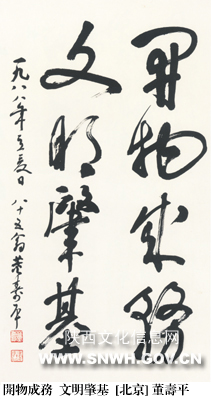 開物成務
文明肇基
一九八八年立夏日 八十五翁董壽平
陕西文化信息网
WWW.SNWH.GOV.CN
開物成務 文明肇基 [北京] 董壽平